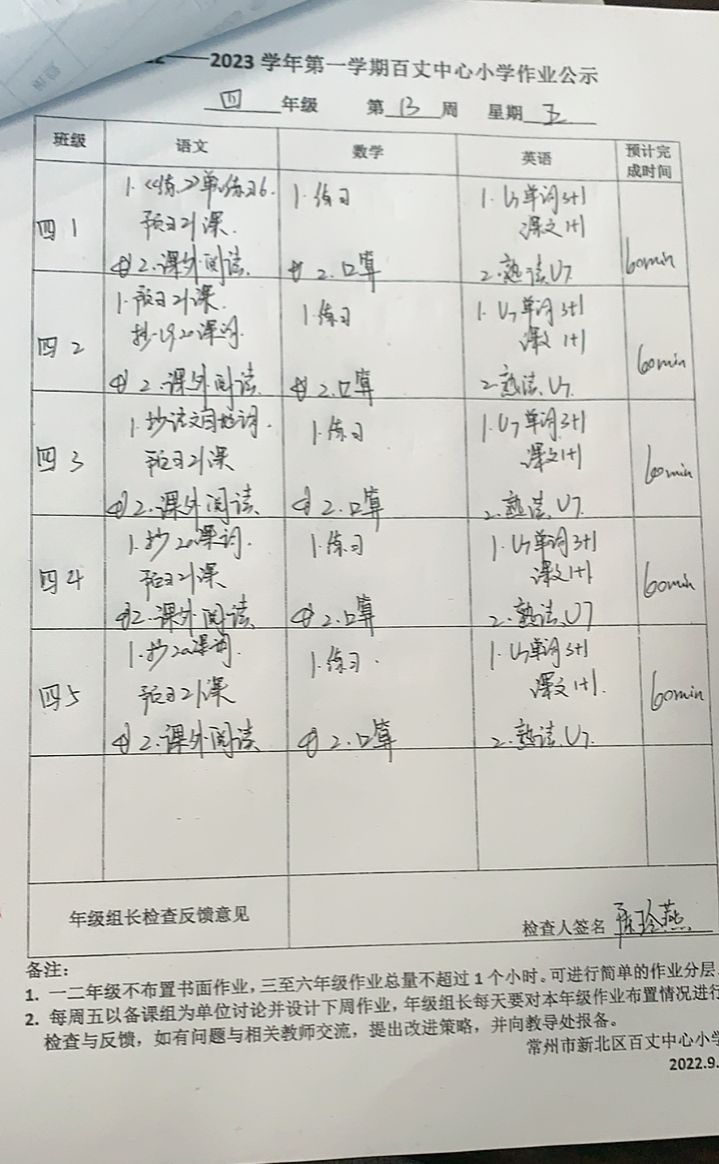 2023 学年第一学期百丈中心小学作业公示
四 年级 第 13 周 星期 五
班级 语文 数学 英语 预计完成时间
四1
1. 《练》单练习6. 1. 练习 1. U7单词3+1
预习21课. 课文1+1
2. 课外阅读. 2. 口算 2. 熟读U7 60min
四2
1. 预习21课. 1. 练习 1. U7单词3+1
抄 20课词. 课文1+1
2. 课外阅读 2. 口算 2. 熟读U7. 60min
四3
1. 抄语文园地词. 1. 练习 1. U7单词3+1
预习21课 课文1+1
2. 课外阅读 2. 口算 2. 熟读U7. 60min
四4
1. 抄20课词. 1. 练习 1. U7单词3+1
预习21课 课文1+1
2. 课外阅读 2. 口算 2. 熟读U7 60min
四5
1. 抄20课词. 1. 练习. 1. U7单词3+1
预习21课 课文1+1.
2. 课外阅读 2. 口算 2. 熟读U7. 60min
年级组长检查反馈意见
检查人签名
备注：
1. 一二年级不布置书面作业，三至六年级作业总量不超过 1 个小时。可进行简单的作业分层
2. 每周五以备课组为单位讨论并设计下周作业，年级组长每天要对本年级作业布置情况进行
检查与反馈，如有问题与相关教师交流，提出改进策略，并向教导处报备。
常州市新北区百丈中心小学
2022.9.